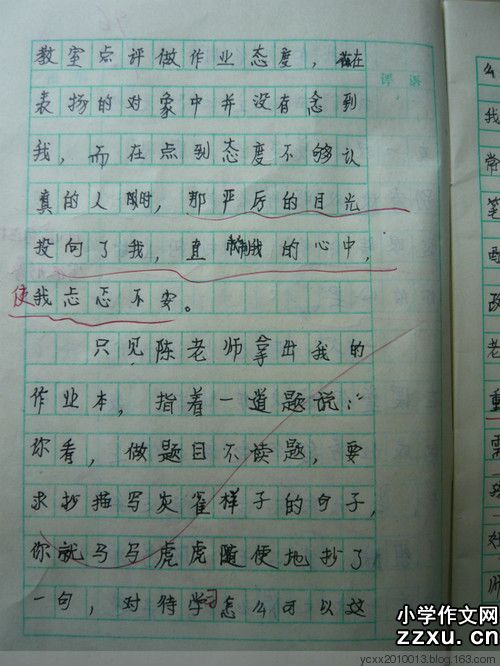 教室点评做作业态度，在
表扬的对象中并没有念到
我，而在点到态度不够认
真的人时，那严厉的目光
投向了我，直刺我的心中，
使我忐忑不安。
只见陈老师拿出我的
作业本，指着一道题说：
你看，做题目不读题，要
求抄描写灰雀样子的句子，
你就马马虎虎随便地抄了
一句，对待学习怎么可以这
评语
么
我
常
笔
政
老
重
需
妙
师
小学作文网
zzxu.cn
ycxx2010013.blog.163.com